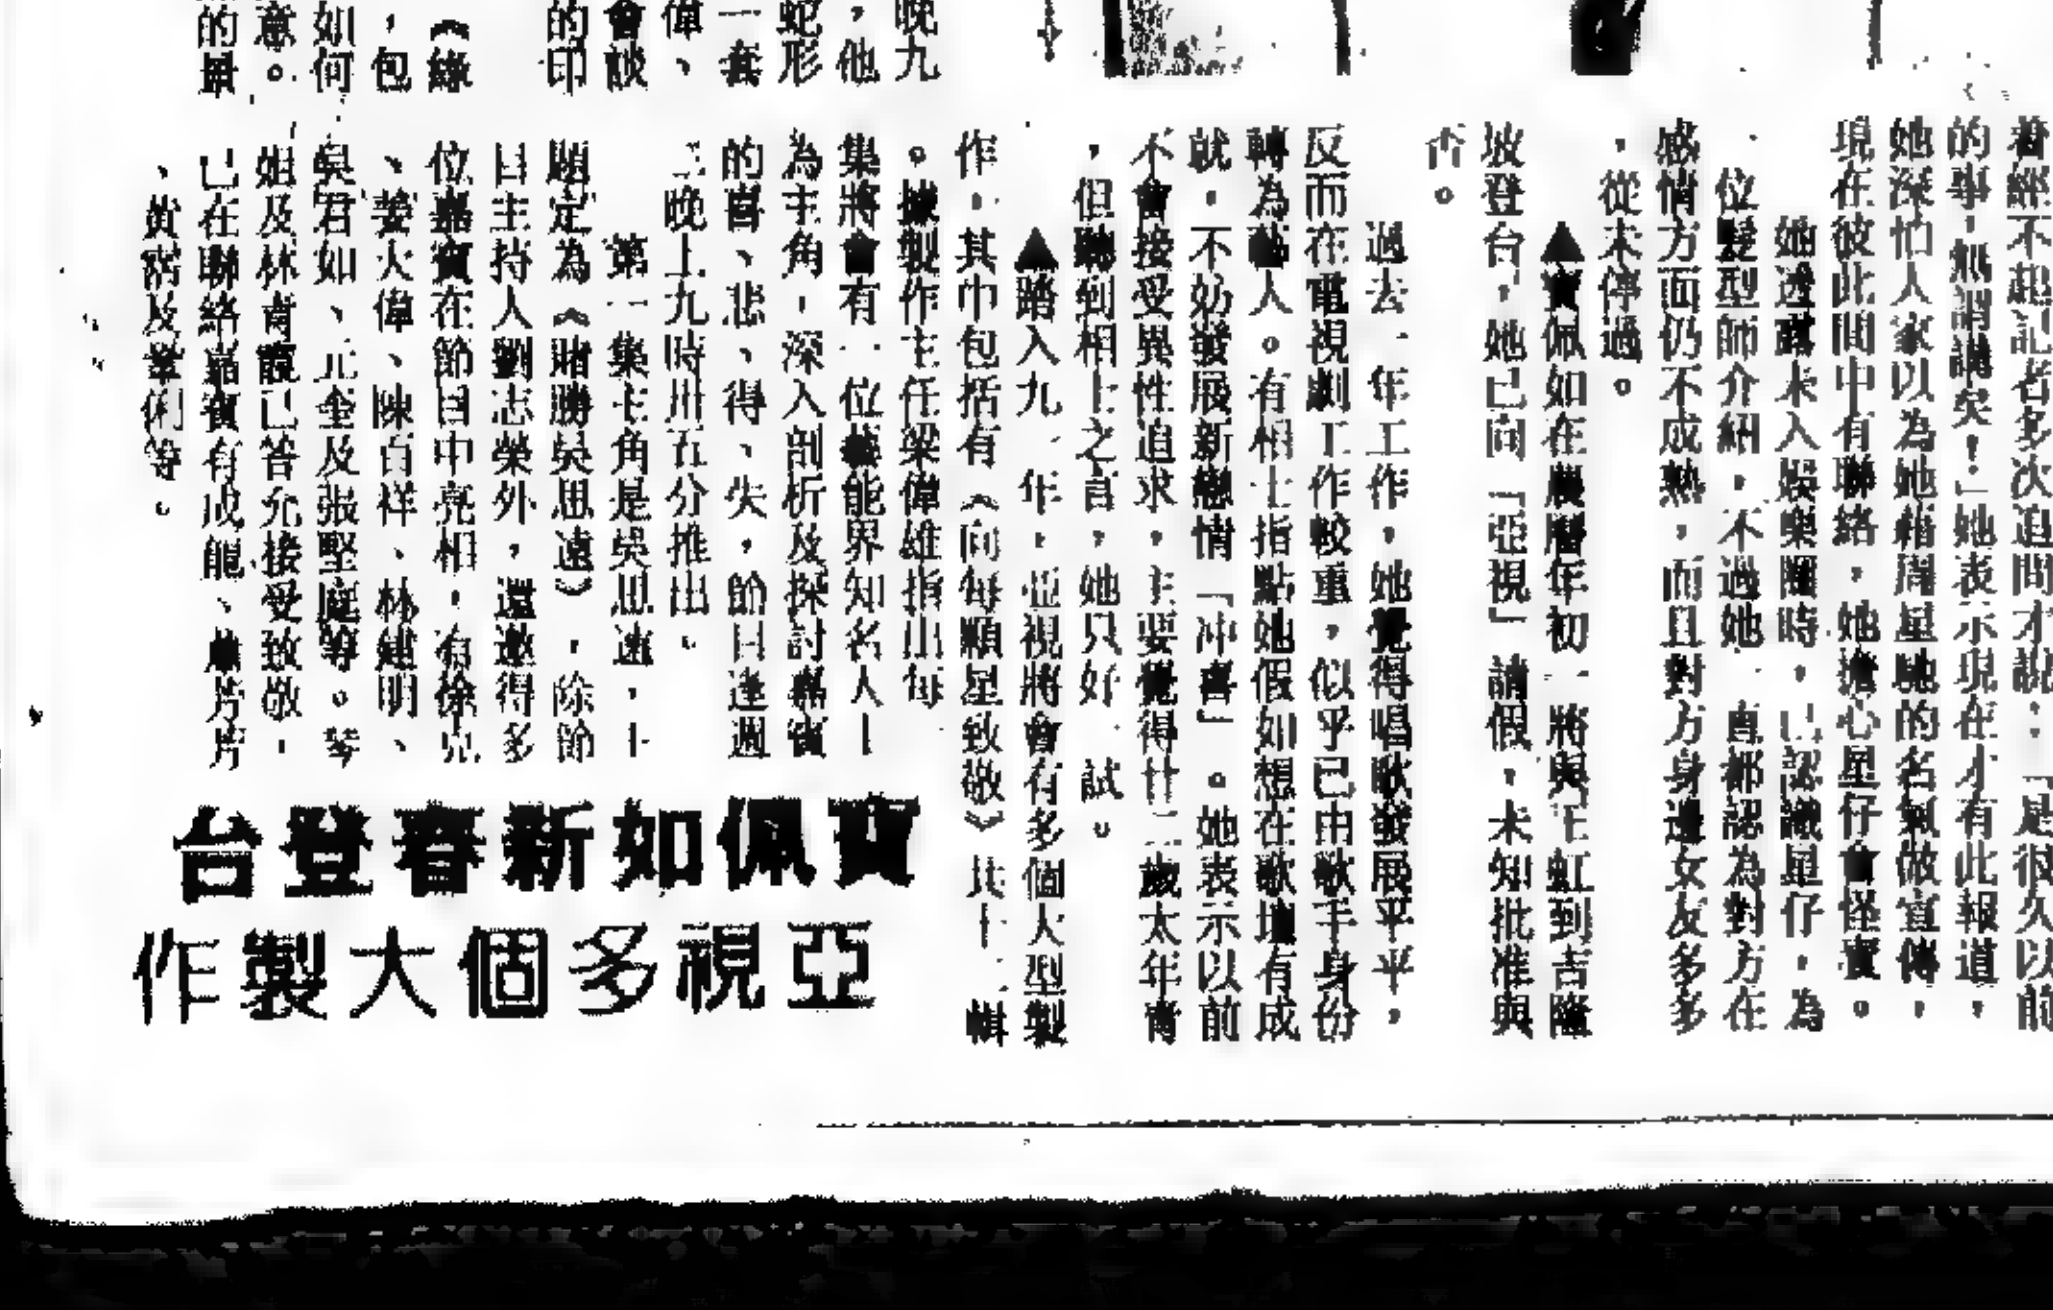 着經不起記者多次追問才說：「是很久以前
的事，無謂講矣！」她表示現在才有此報道，
她深怕人家以為她藉周星馳的名氣做宣傳，
現在彼此間中有聯絡，她擔心星仔會怪責。
她透露未入娛樂圈時，已認識星仔，為
一位髮型師介紹，不過她一直都認為對方在
感情方面仍不成熟，而且對方身邊女友多多
，從未停過。
▲寶佩如在農曆年初一將與王虹到吉隆
坡登台，她已向「亞視」請假，未知批准與
否。
過去一年工作，她覺得唱歌發展平平，
反而在電視劇工作較重，似乎已由歌手身份
轉為藝人。有相士指點她假如想在歌壇有成
就，不妨發展新戀情「冲喜」。她表示以前
不會接受異性追求，主要覺得廿二歲太年青
，但聽到相士之言，她只好一試。
▲踏入九一年，亞視將會有多個大型製
作，其中包括有《向每顆星致敬》共十二輯
。據製作主任梁偉雄指出每
集將會有一位藝能界知名人士
為主角，深入剖析及探討嘉賓
的喜、悲、得、失，節目逢週
三晚上九時卅五分推出。
第一集主角是吳思遠，
題定為《賭勝吳思遠》，除節
目主持人劉志榮外，還邀得多
位嘉賓在節目中亮相，有徐克
、姜大偉、陳百祥、林建明、
吳君如、元奎及張堅庭等。琴
姐及林青霞已答允接受致敬，
已在聯絡嘉賓有成龍、蕭芳芳
、黃霑及葉俐等。
寶佩如新春登台
亞視多個大製作
晚九
，他
蛇形
一套
偉、
會談
的印
《綠
，包
如何
意。
的最